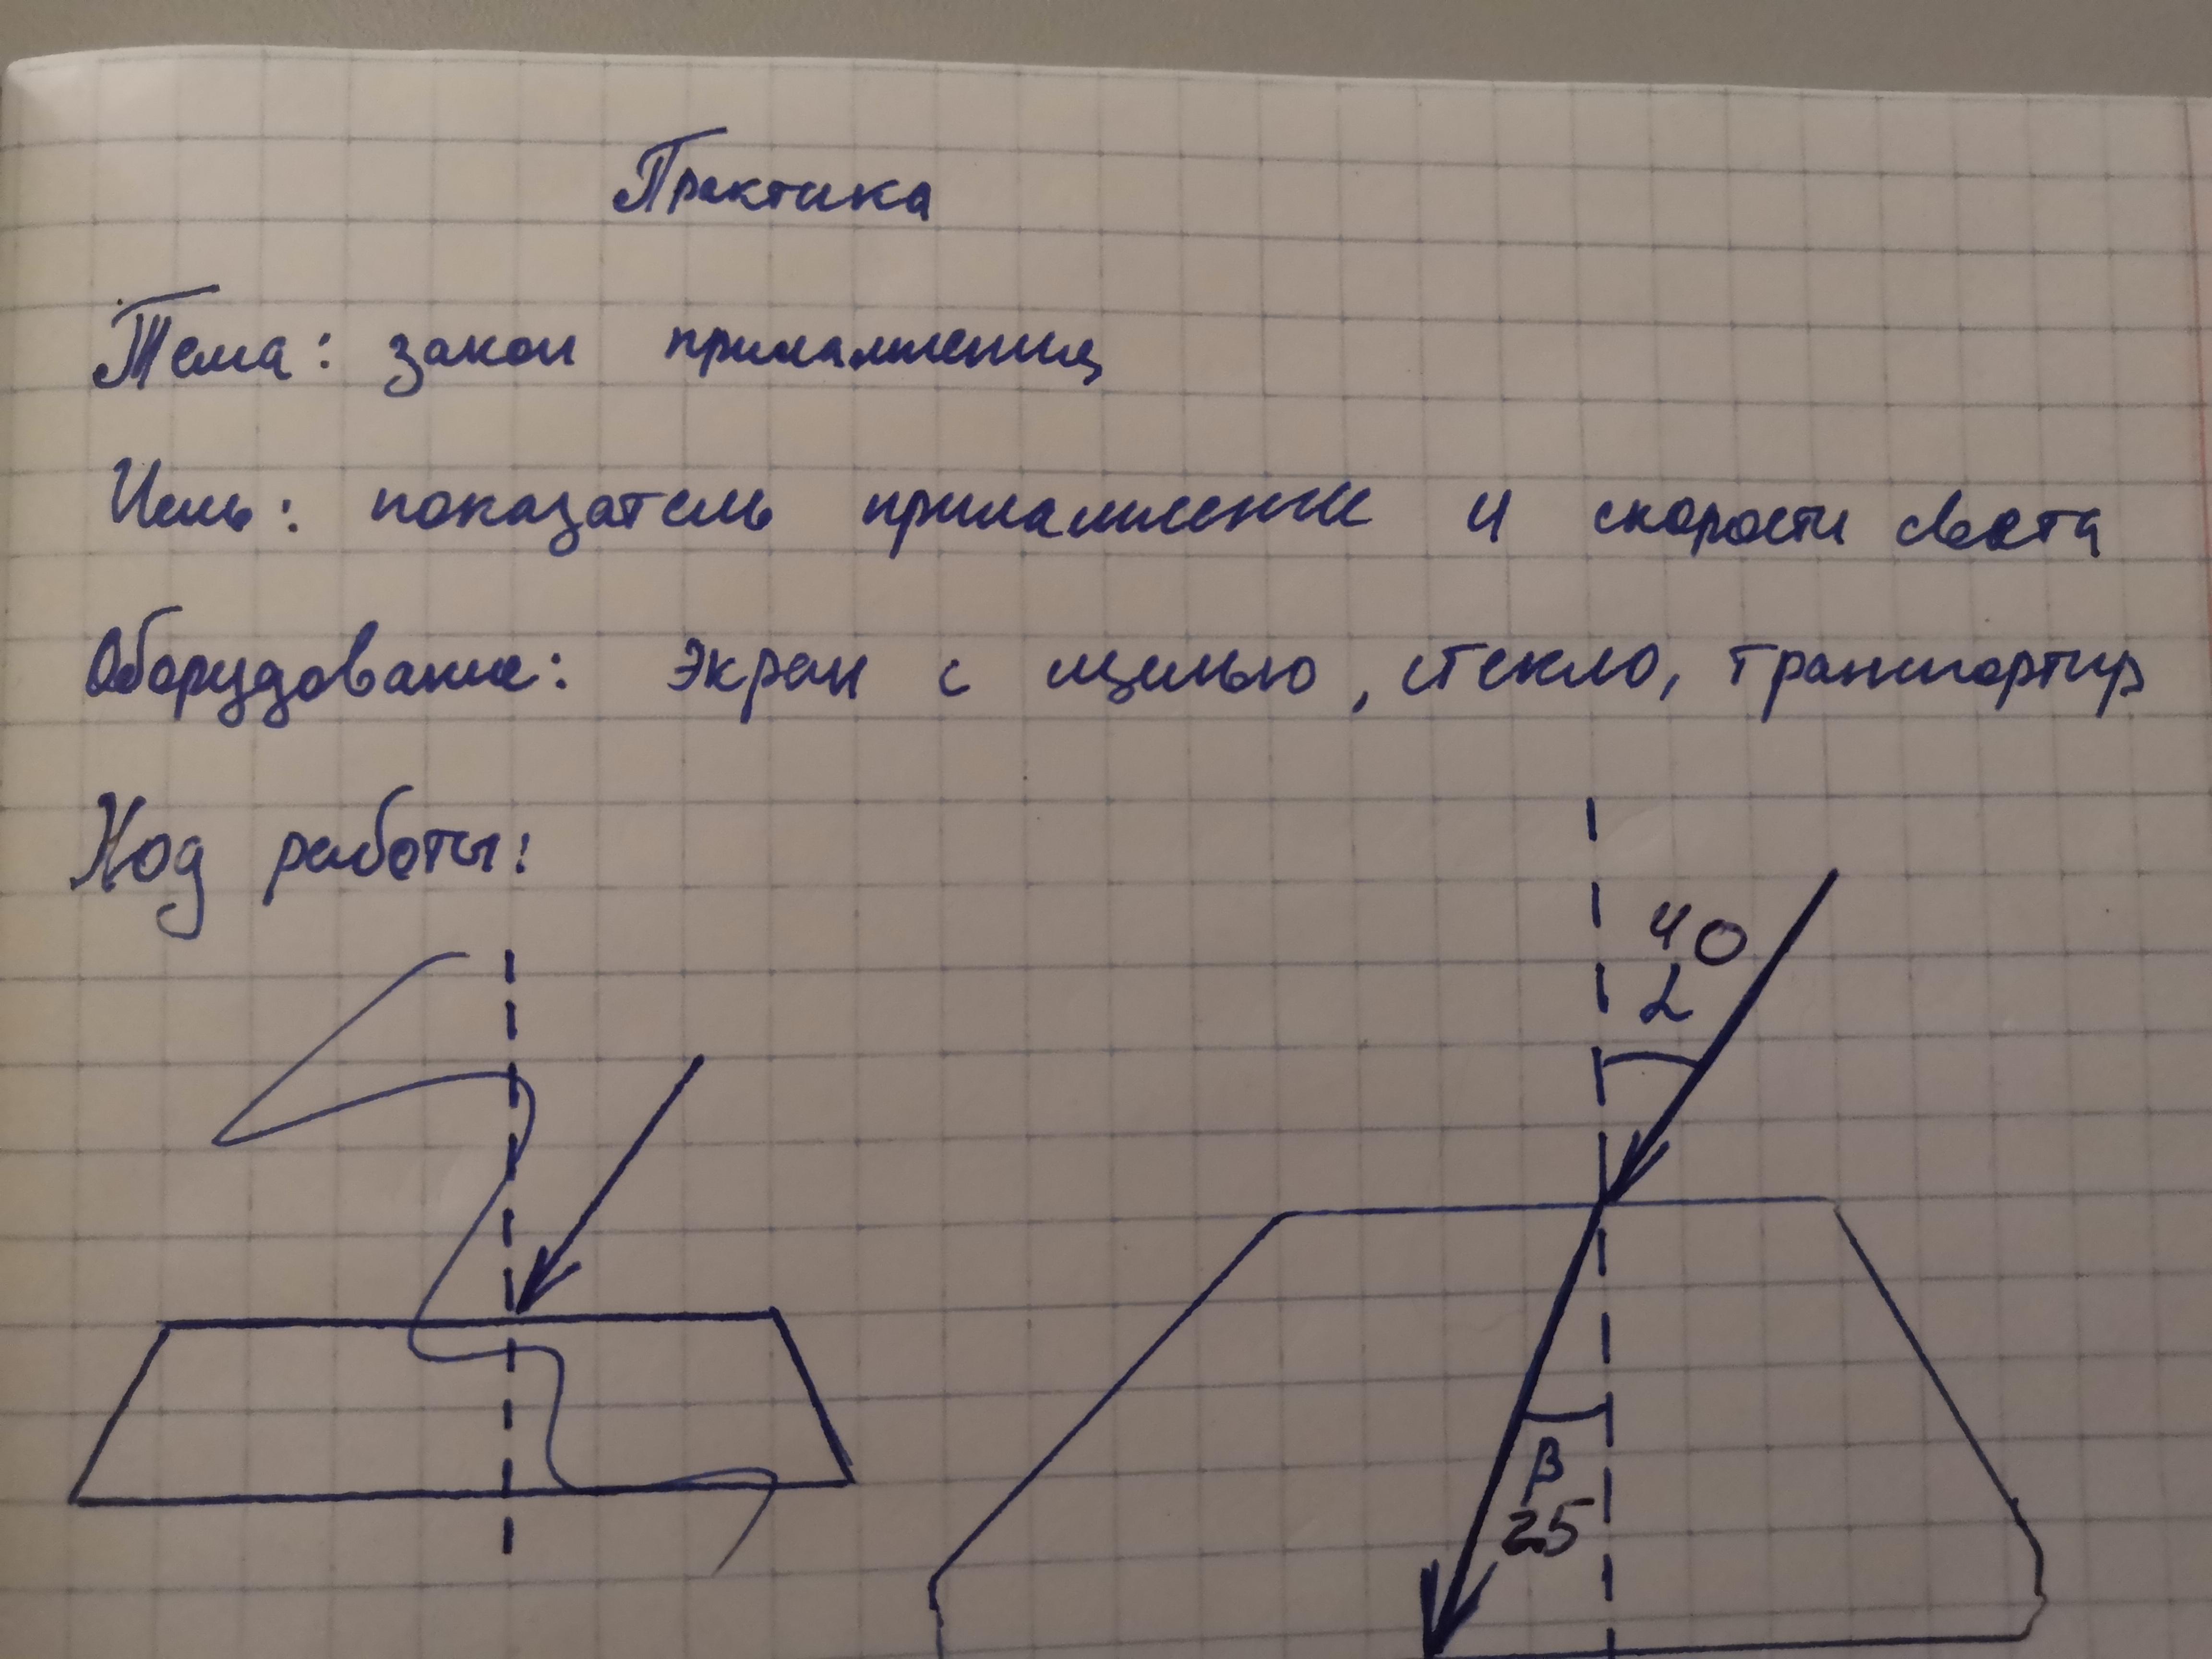 Практика
Тема: закон приламления
Цель: показатель приламление и скорости света
Оборудование: экран с щелью, стекло, транспортир
Ход работы:
40
α
β
25